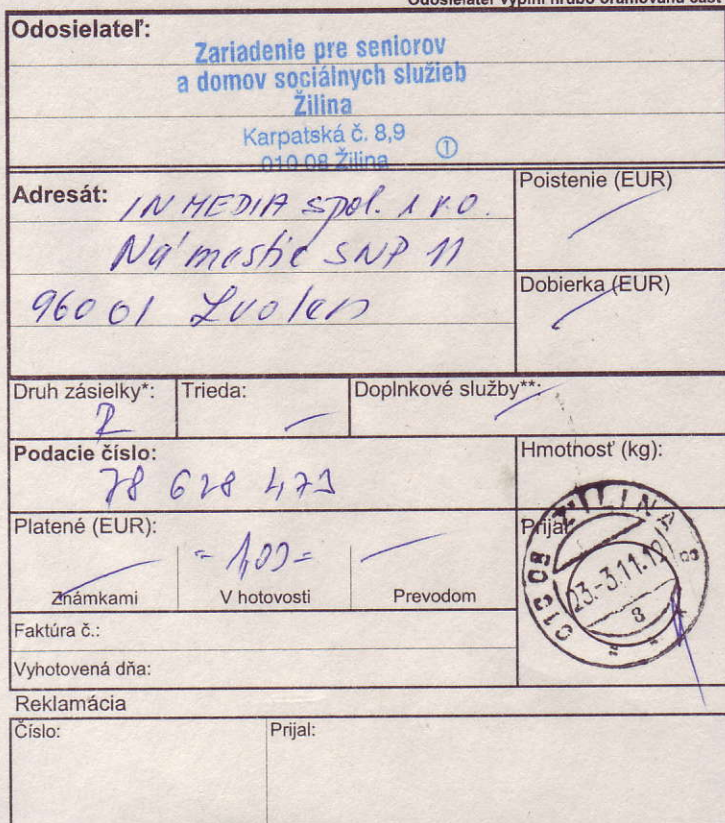 Odosielateľ vyplní hrubo orámovanú časť
Odosielateľ:
Zariadenie pre seniorov
a domov sociálnych služieb
Žilina
Karpatská č. 8,9
010 08 Žilina
1
Adresát: INMEDIA spol. s r.o.
Námestie SNP 11
960 01 Zvolen
Poistenie (EUR)
Dobierka (EUR)
Druh zásielky*: R
Trieda:
Doplnkové služby**:
Podacie číslo:
78 628 473
Hmotnosť (kg):
Platené (EUR):
Známkami
V hotovosti
Prevodom
Prijal:
ŽILINA 8
010 08
23.-3.11.12
8
Faktúra č.:
Vyhotovená dňa:
Reklamácia
Číslo:
Prijal: